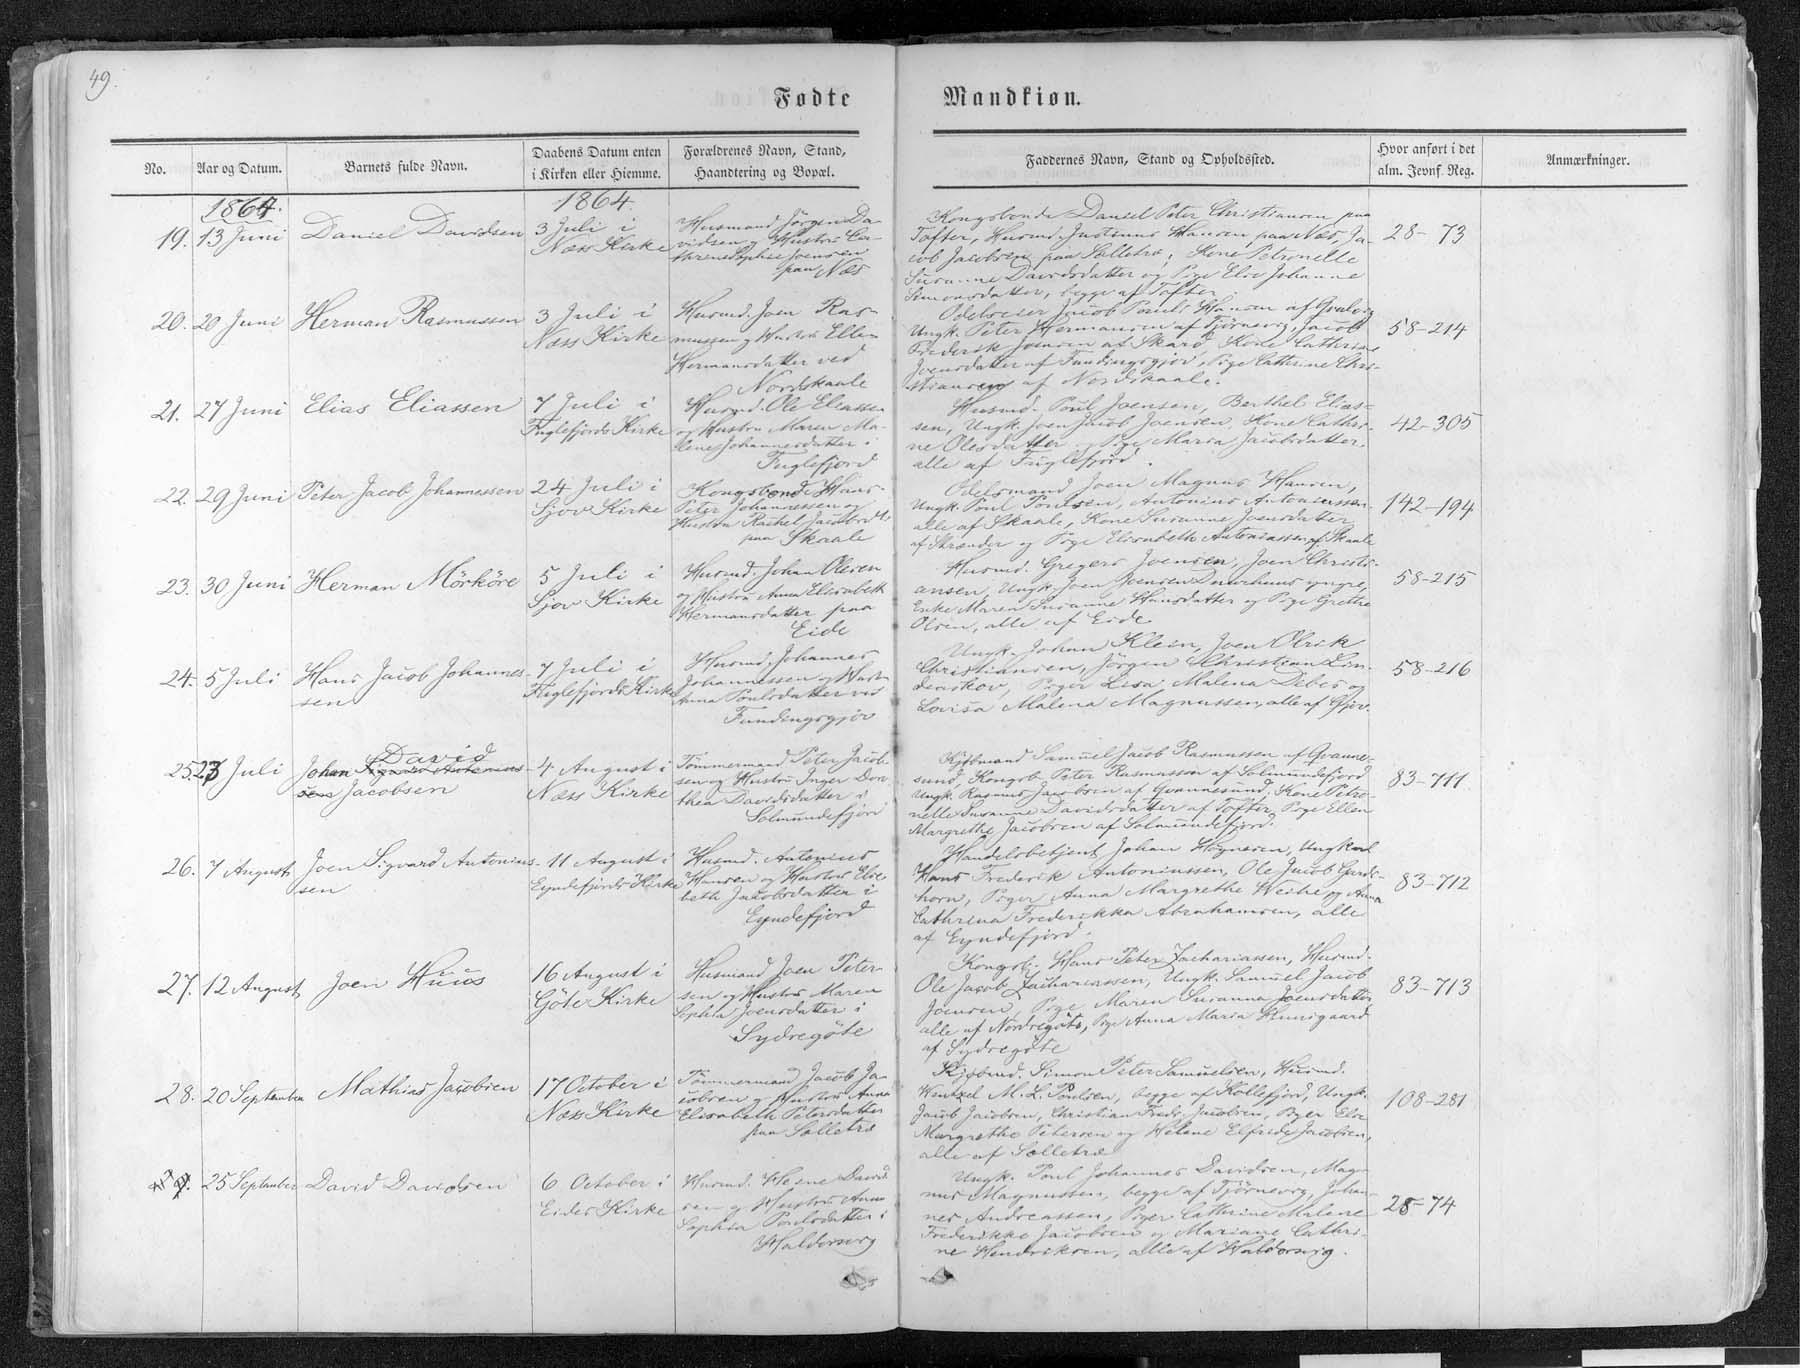 49.
Fødte Mandkiøn.
No.
Aar og Datum.
Barnets fulde Navn.
Daabens Datum enten
i Kirken eller Hiemme.
Forældrenes Navn, Stand,
Haandtering og Bopæl.
Faddernes Navn, Stand og Opholdssted.
Hvor anført i det
alm. Jevnf. Reg.
Anmærkninger.
1864.
1864.
19. 13 Juni
Daniel Davidsen
3 Juli i
Næss Kirke
Husmand Jörgen Da-
vidsen og Hustru Ca-
thrine Sophie Joensen
paa Næs
Kongsbonde Daniel Peter Christiansen paa
Tofter, Husmd. Justinus Hansen paa Næs, Ja-
cob Jacobsen paa Salletræ, Kone Petronelle
Susanne Davidsdatter og Pige Else Johanne
Simonsdatter, begge af Tofter.
28-73
20. 20 Juni
Herman Rasmussen
3 Juli i
Næss Kirke
Husmd. Joen Ras-
mussen og Hustru Ellen
Hermansdatter ved
Nordskaale
Odelseier Jacob Pauli Hansen af
Ungk. Peter Hermansen af Tjörnevig, Jacob
Frederik Joensen af Skard, Kone Cathrine
Joensdatter af Fundingsgjov, Pige Cathrine Chri-
stiansen af Nordskaale.
58-214
21. 27 Juni
Elias Eliassen
7 Juli i
Fuglefjords Kirke
Husmd. Ole Eliassen
og Hustru Maren Ma-
lene Johannesdatter i
Fuglefjord
Husmd. Poul Joensen, Berthel Elias-
sen, Ungk. Joen Jacob Joensen, Kone Cathri-
ne Olesdatter, Pige Maria Jacobsdatter,
alle af Fuglefjord.
42-305
22. 29 Juni
Peter Jacob Johannessen
24 Juli i
Sjov Kirke
Kongsbonde Hans
Peter Johannessen og
Hustru Rachel Jacobsdt.
paa Skaale
Odelsmand Joen Magnus Hansen,
Ungk. Poul Poulsen, Antonius Antoniussen
alle af Skaale, Kone Susanne Joensdatter
af Strænder og Pige Elisabeth Antoniussen af Skaale
142-194
23. 30 Juni
Herman Mörköre
5 Juli i
Sjov Kirke
Husmd. Johan Olesen
og Hustru Anna Elisabeth
Hermansdatter paa
Eide
Husmd. Gregers Joensen, Joen Christi-
ansen, Ungk. Joen Joensen Duurhuus yngre,
Enke Maren Susanne Hansdatter og Pige Grethe
Olsen, alle af Eide
58-215
24. 5 Juli
Hans Jacob Johannes-
sen
7 Juli i
Fuglefjords Kirke
Husmd. Johannes
Johannessen og Hustru
Anna Poulsdatter ved
Fundingsgjov
Ungk. Johan Klein, Joen Olrik
Christiansen, Jörgen Christian Lin-
denskov, Piger Lisa Malena Debes og
Lovisa Malena Magnussen, alle af Gjov.
58-216
25. 27 Juli
David
Johan Sigvard Antonius-
sen Jacobsen
4 August i
Næss Kirke
Tömmermand Peter Jacob-
sen og Hustru Inger Doro-
thea Davidsdatter i
Solmundefjord
Kjöbmand Samuel Jacob Rasmussen af Qvanne-
sund, Kongsb. Peter Rasmussen af Solmundefjord
Ungk. Rasmus Jacobsen af Qvannesund, Kone Petro-
nelle Susanne Davidsdatter af Tofter, Pige Ellen
Margrethe Jacobsen af Solmundefjord.
83-711
26. 7 August
Joen Sigvard Antonius-
sen
11 August i
Eyndefjords Kirke
Husmd. Antonius
Hansen og Hustru Elsi-
beth Jakobsdatter i
Eyndefjord
Handelsbetjent Johan Högnesen, Ungkarl
Hans Frederik Antoniussen, Ole Jacob Gards-
horn, Piger Anna Margrethe Weihe og Anna
Cathrina Frederikka Abrahamsen, alle
af Eyndefjord.
83-712
27. 12 August
Joen Huus
16 August i
Göte Kirke
Husmand Joen Peter-
sen og Hustru Maren
Sophia Joensdatter i
Sydregöte
Kongsb. Hans Peter Zachariassen, Husmd.
Ole Jacob Zachariassen, Ungk. Samuel Jacob
Joensen, Pige Maren Susanna Joensdatter,
alle af Nordregöte, Pige Anna Maria
af Sydregöte
83-713
28. 20 September
Mathias Jacobsen
17 October i
Næss Kirke
Tömmermand Jacob Ja-
cobsen og Hustru Anna
Elisabeth Petersdatter
paa Salletræ
Kjöbmd. Simon Peter Samuelsen, Husmd.
Wentzel M. L. Poulsen, begge af Kollefjord, Ungk.
Jacob Jacobsen, Christian Fredr. Jacobsen, Piger Else
Margrethe Petersen og Helene Elfrede Jacobsen,
alle af Salletræ
108-281
25 September
David Davidsen
6 October i
Eides Kirke
Husmd. David-
sen og Hustru Anna
Sophia Poulsdatter i
Haldorsvig
Ungk. Poul Johannes Davidsen, Mag-
nus Magnussen, begge af Tjörnevig, Johan-
nes Andreassen, Piger Cathrine Malene
Frederikke Jacobsen og Mariane Cathri-
ne Hendriksen, alle af Haldorsvig.
28-74